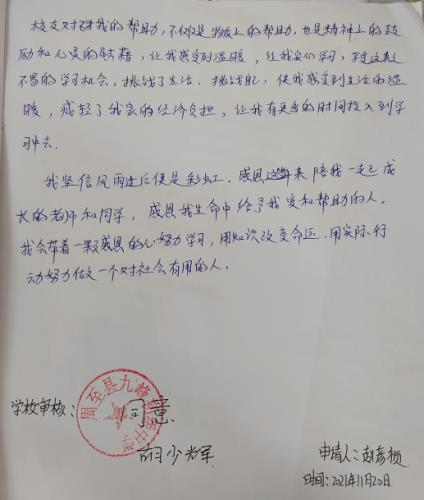 校友对我的帮助，不仅是物质上的帮助，也是精神上的鼓
励和心灵的慰藉，让我感受到温暖，让我安心学习，
不易的学习机会，挑战了生活，挑战自己，使我感受到生活的温
暖，减轻了我家的经济负担，让我有更多的时间投入到学
习中去。
我坚信风雨过后便是彩虹。感恩这些年来陪我一起成
长的老师和同学，感恩我生命中给予我爱和帮助的人。
我会带着一颗感恩的心努力学习，用知识改变命运，用实际行
动努力做一个对社会有用的人。
学校审核：同意
周至县九峰中学
胡少军
申请人：赵彦
日期：2021年11月20日